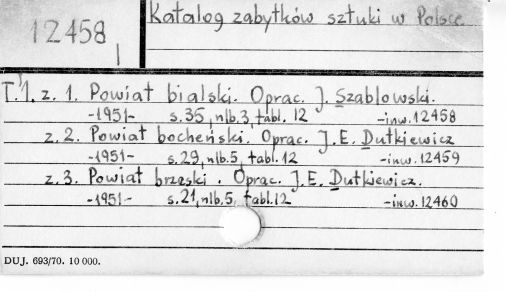 12458
1
Katalog zabytków sztuki w Polsce
T. 1. z. 1. Powiat bialski. Oprac. J. Szablowski.
-1951- s. 35, nlb. 3, tabl. 12 -inw. 12458
z. 2. Powiat bocheński. Oprac. J. E. Dutkiewicz
-1951- s. 29, nlb. 5, tabl. 12 -inw. 12459
z. 3. Powiat brzeski. Oprac. J. E. Dutkiewicz.
-1951- s. 21, nlb. 5, tabl. 12 -inw. 12460
DUJ. 693/70. 10 000.